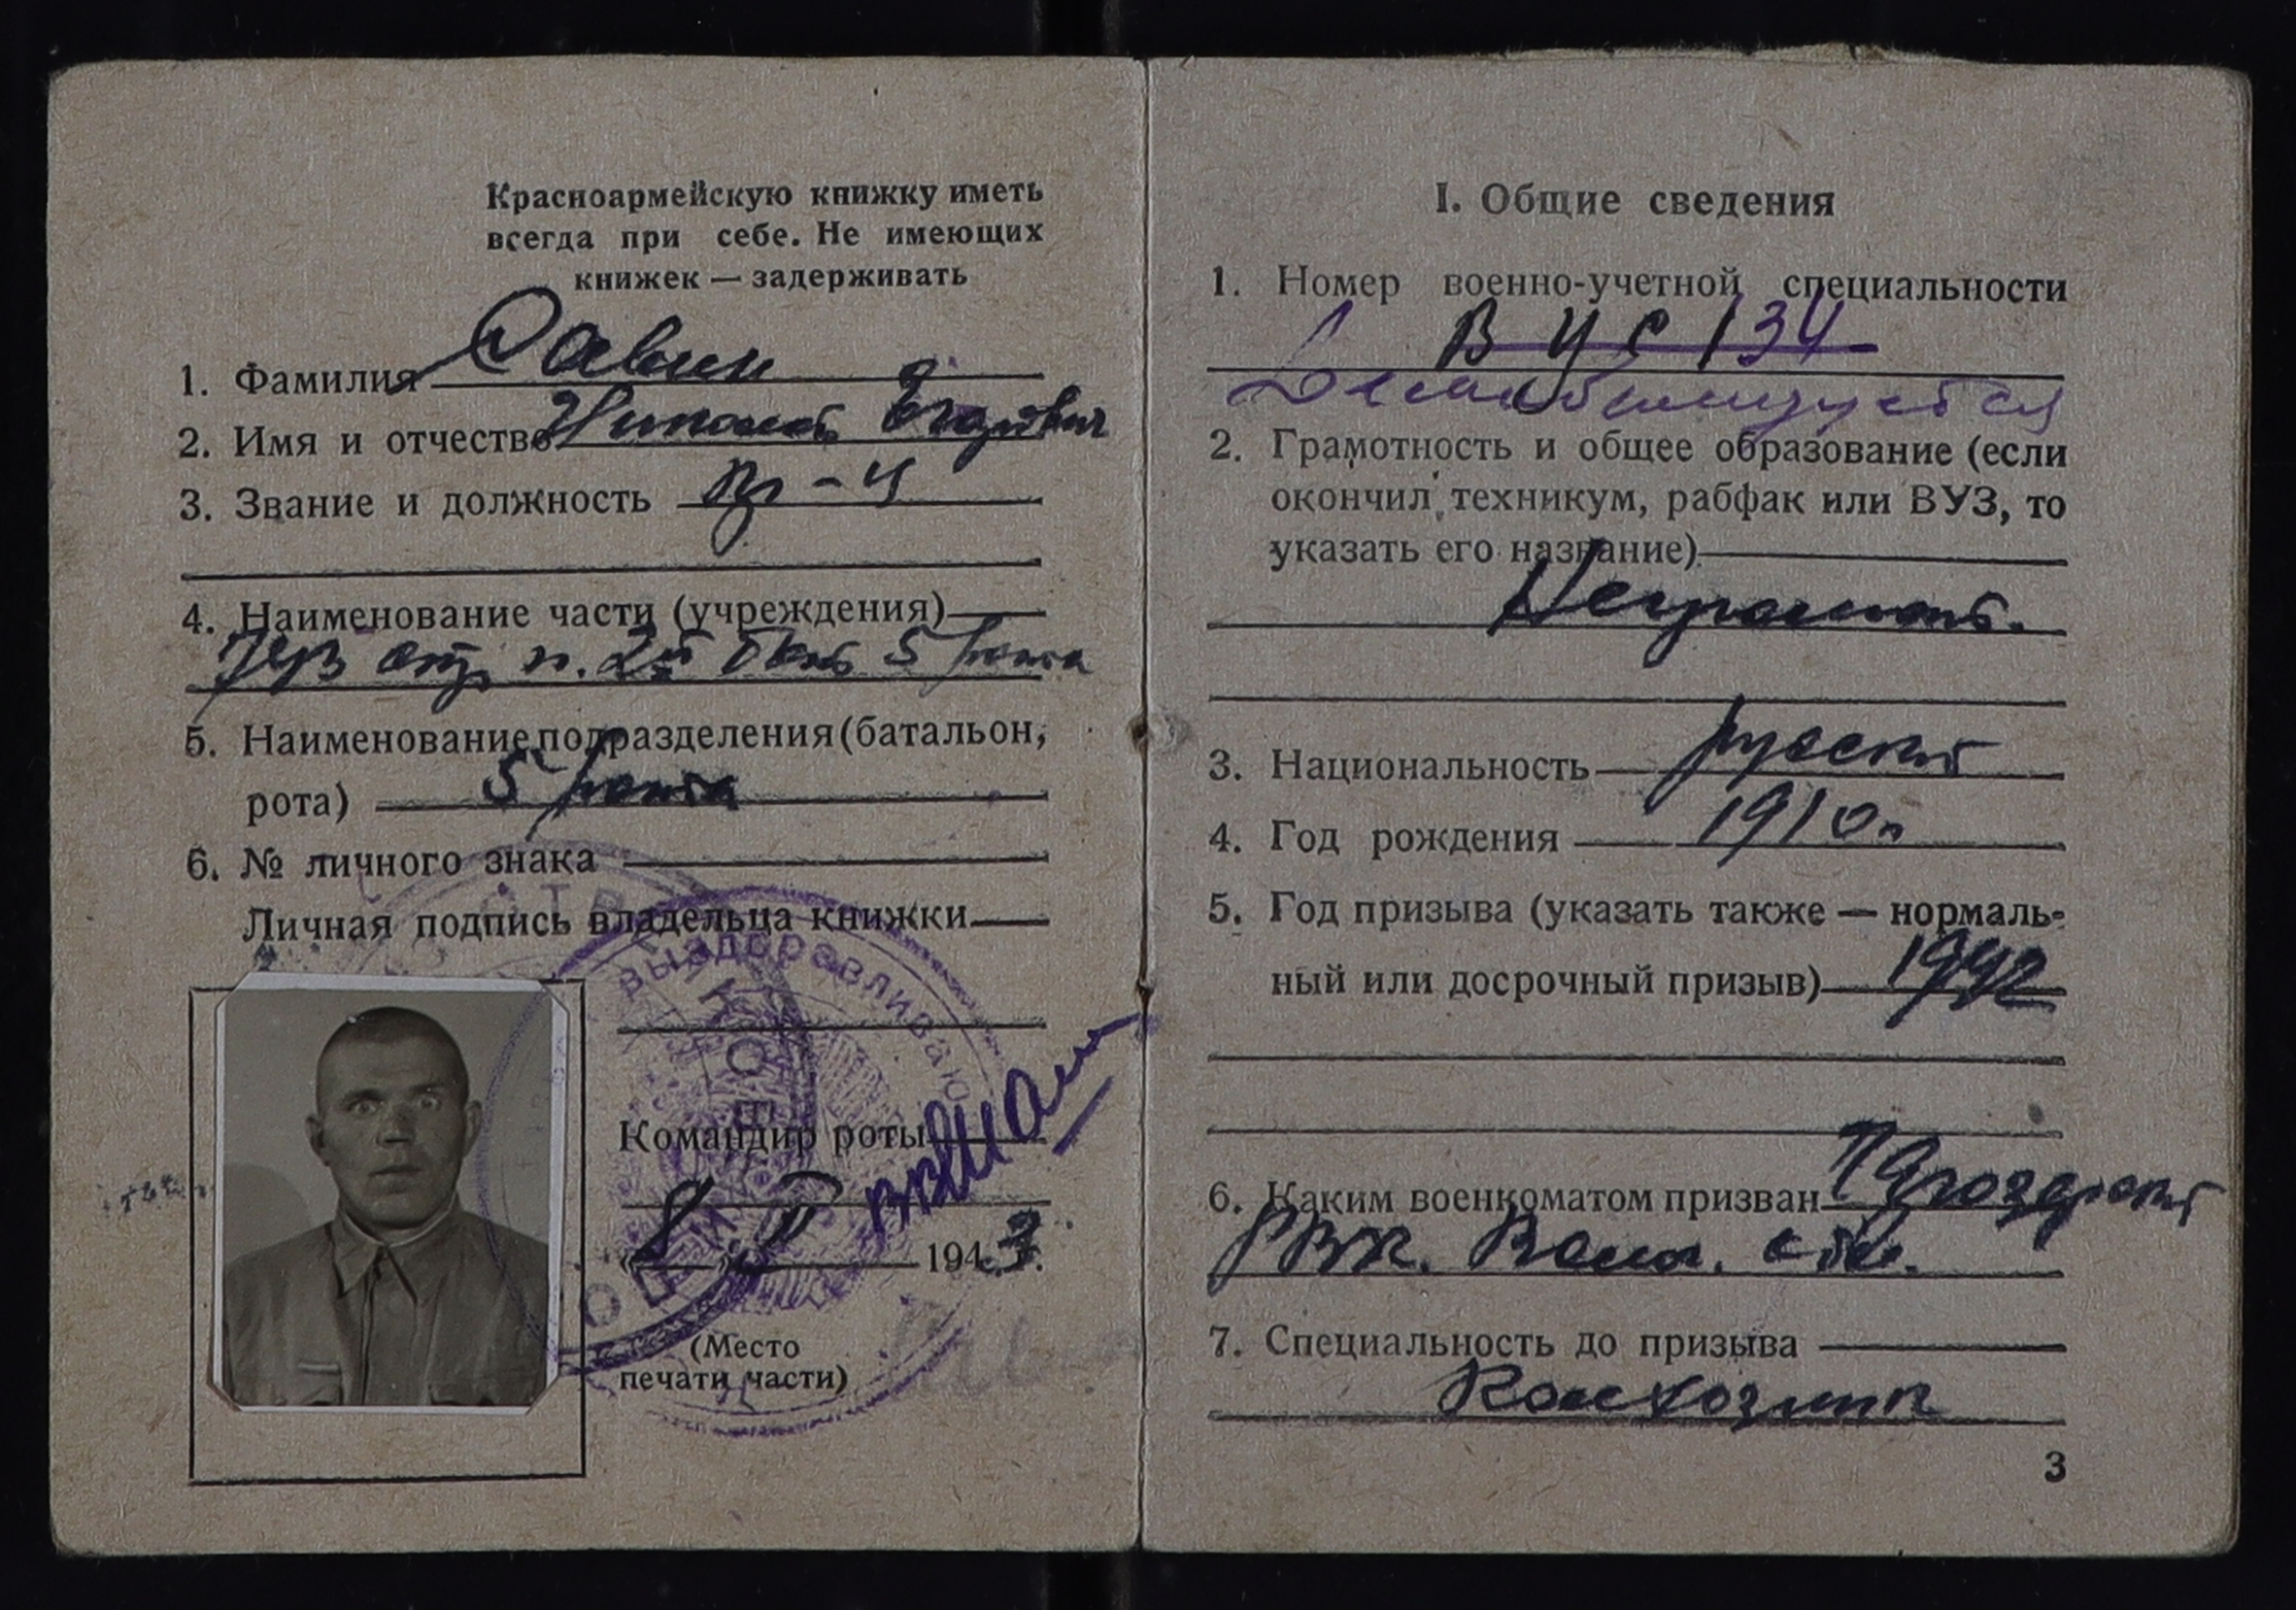 Красноармейскую книжку иметь
всегда при себе. Не имеющих
книжек — задерживать
1. Фамилия Савин
2. Имя и отчество Николай Егорович
3. Звание и должность кр-ц
4. Наименование части (учреждения)
5 рота
5. Наименование подразделения (батальон,
рота) 5 рота
6. № личного знака
Личная подпись владельца книжки
выздоравливаю
Командир роты
«8» II 1943 г.
(Место
печати части)
I. Общие сведения
1. Номер военно-учетной специальности
ВУС 134
Демобилизуется
2. Грамотность и общее образование (если
окончил техникум, рабфак или ВУЗ, то
указать его название)
Неграмот.
3. Национальность русский
4. Год рождения 1910 г.
5. Год призыва (указать также — нормаль-
ный или досрочный призыв) 1942
6. Каким военкоматом призван
РВК. Волог. обл.
7. Специальность до призыва
Колхозник
3